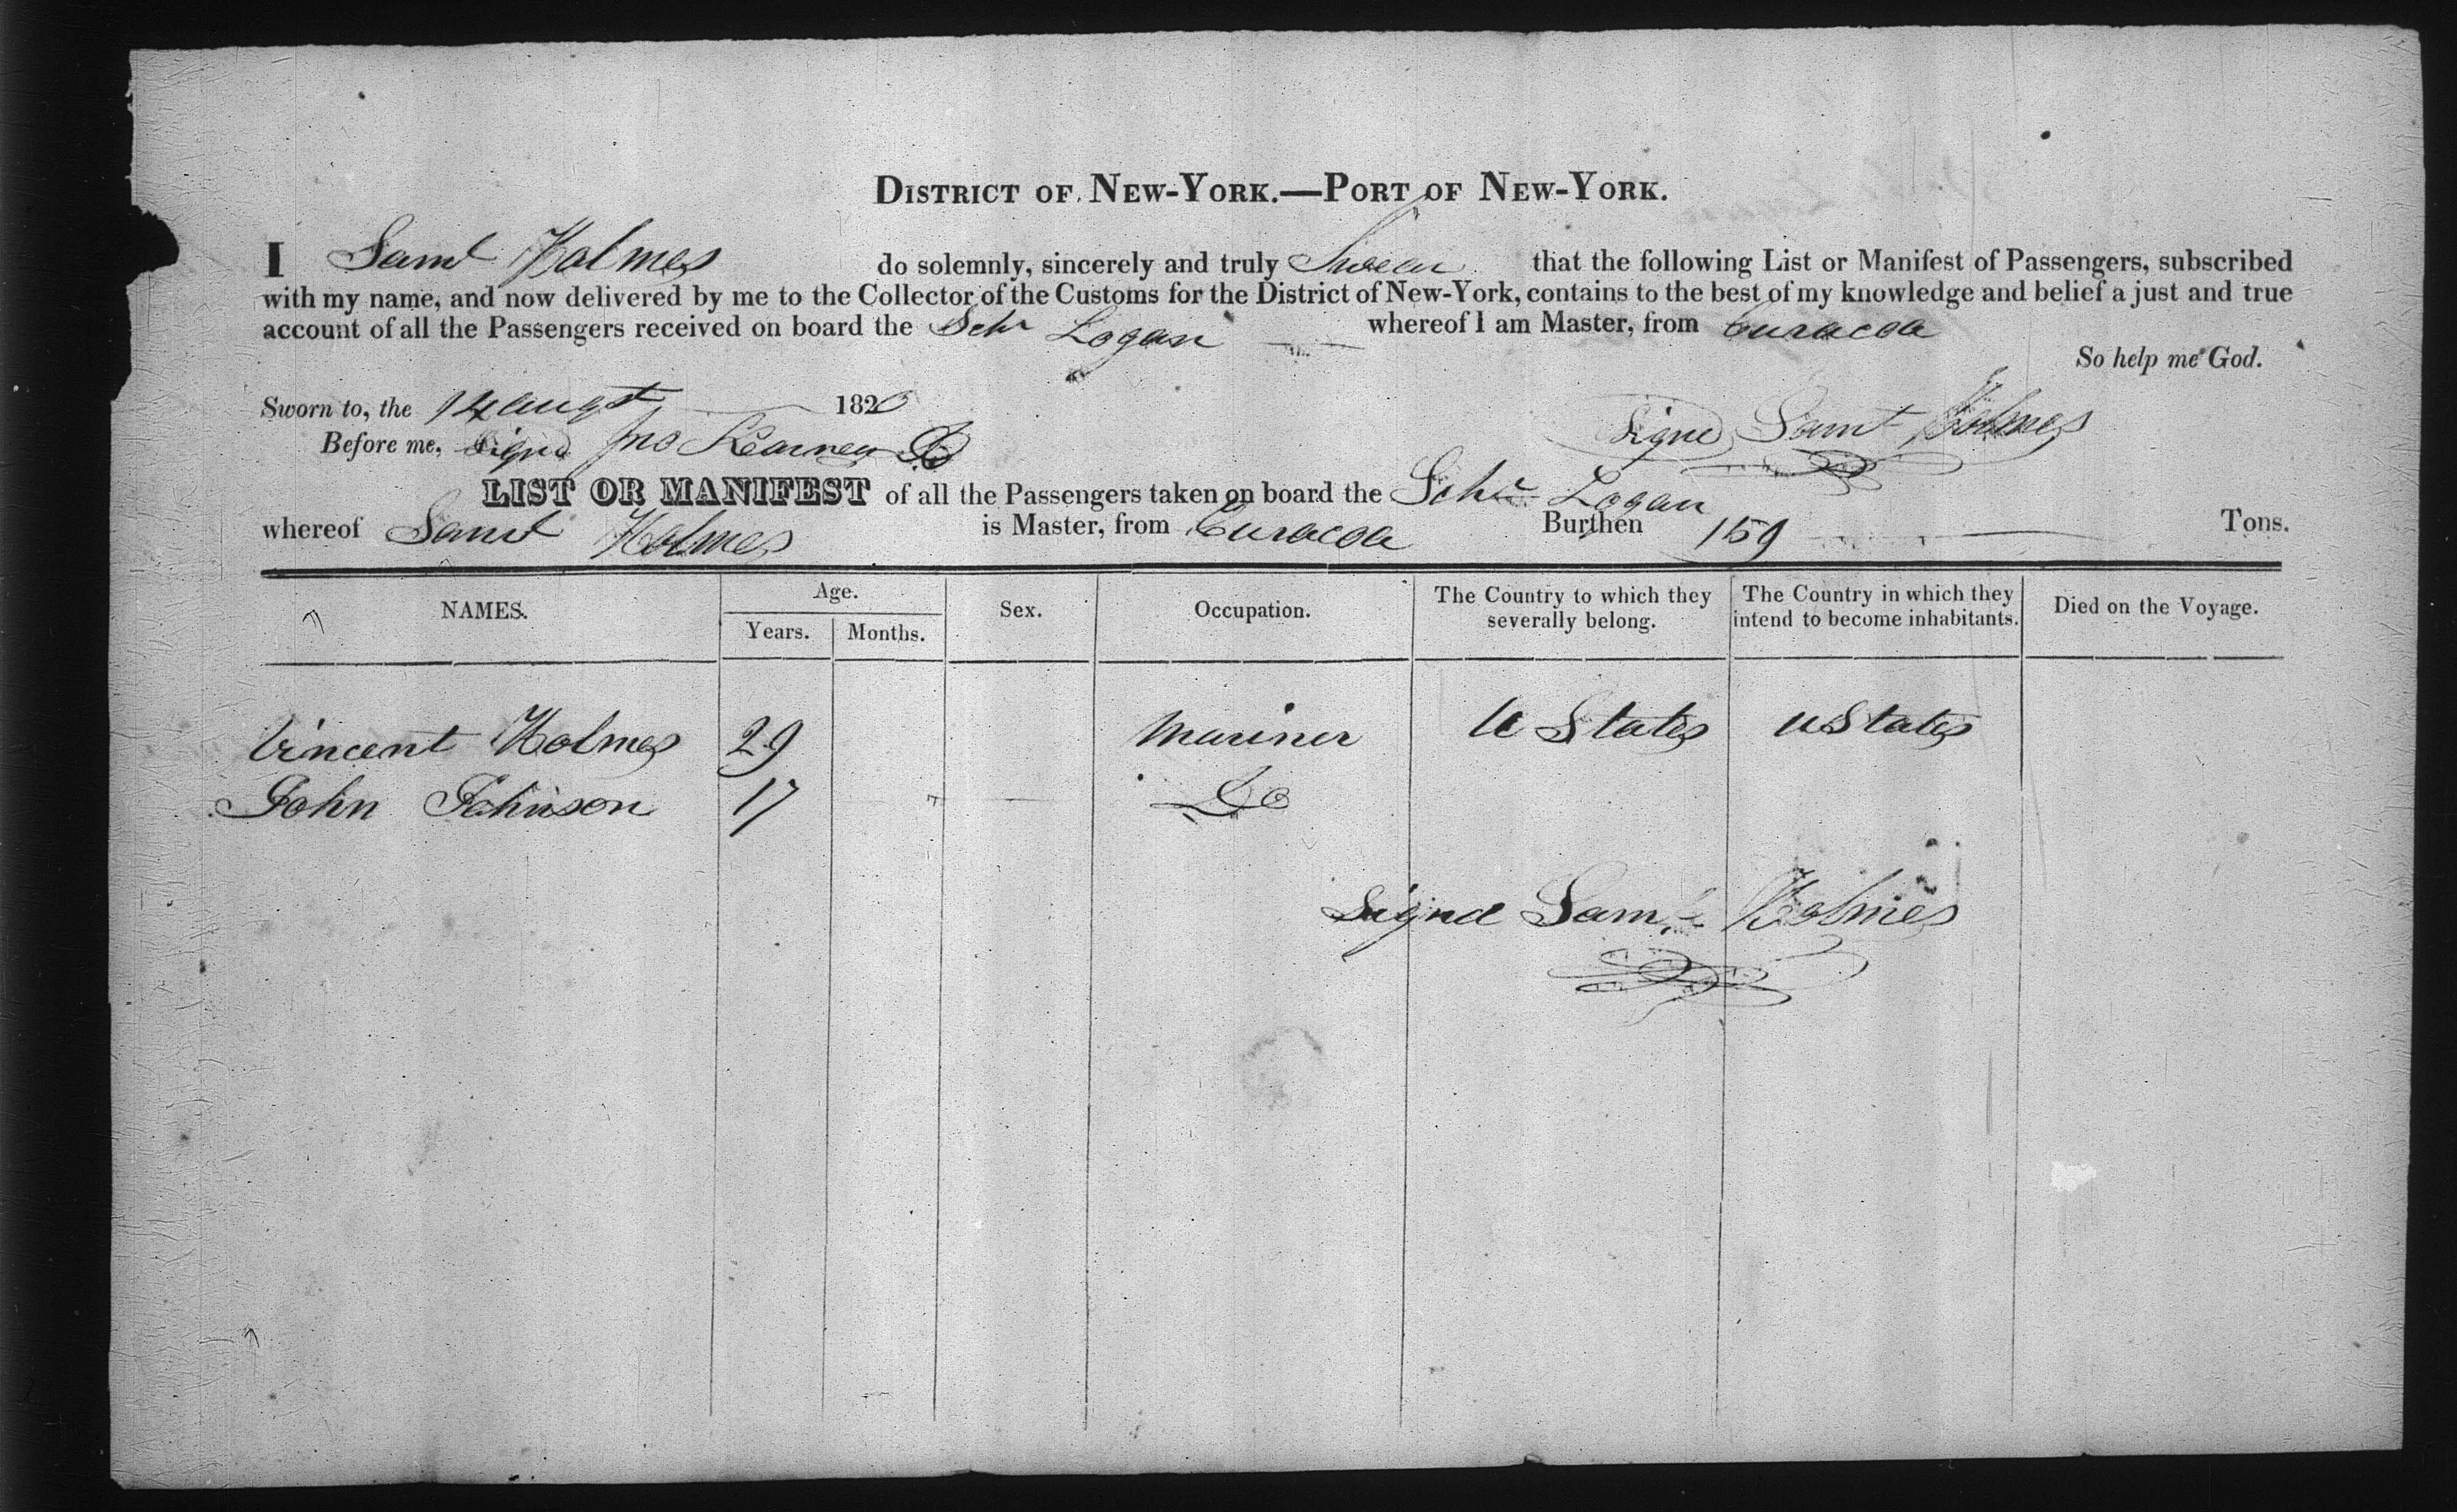 DISTRICT OF NEW-YORK.—PORT OF NEW-YORK.
I Saml Holmes do solemnly, sincerely and truly Swear that the following List or Manifest of Passengers, subscribed
with my name, and now delivered by me to the Collector of the Customs for the District of New-York, contains to the best of my knowledge and belief a just and true
account of all the Passengers received on board the Schr Logan whereof I am Master, from Curacoa
So help me God.
Sworn to, the 14 augst 1820 Signd Saml Holmes
Before me, Signd Jno Kearney
LIST OR MANIFEST of all the Passengers taken on board the Schr Logan
whereof Saml Holmes is Master, from Curacoa Burthen 159 Tons.
NAMES. Age. Years. Months. Sex. Occupation. The Country to which they severally belong. The Country in which they intend to become inhabitants. Died on the Voyage.
Vincent Holmes 29 Mariner U States U States
John Johnson 17 Do
Signd Saml Holmes